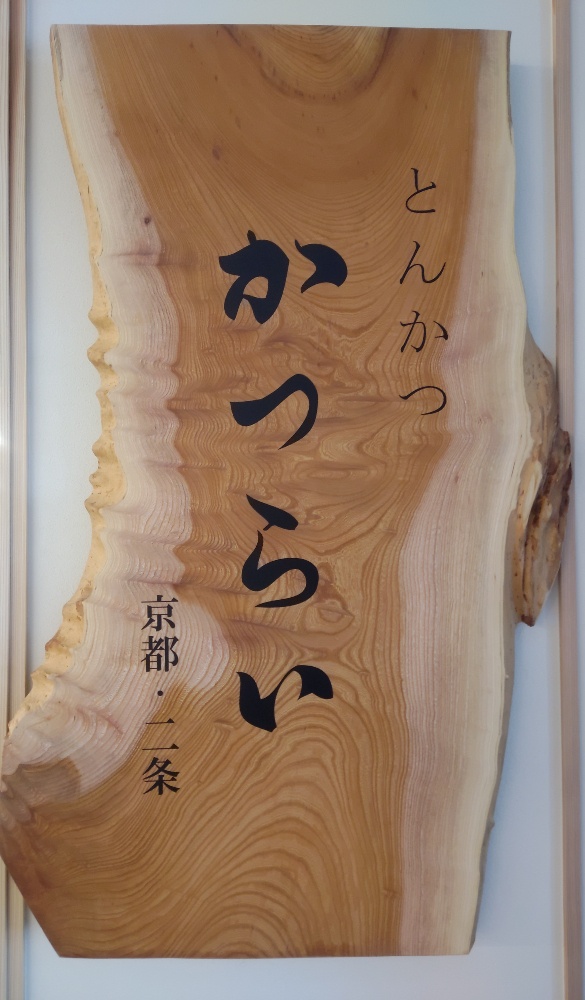 とんかつ
かつらい
京都・二条